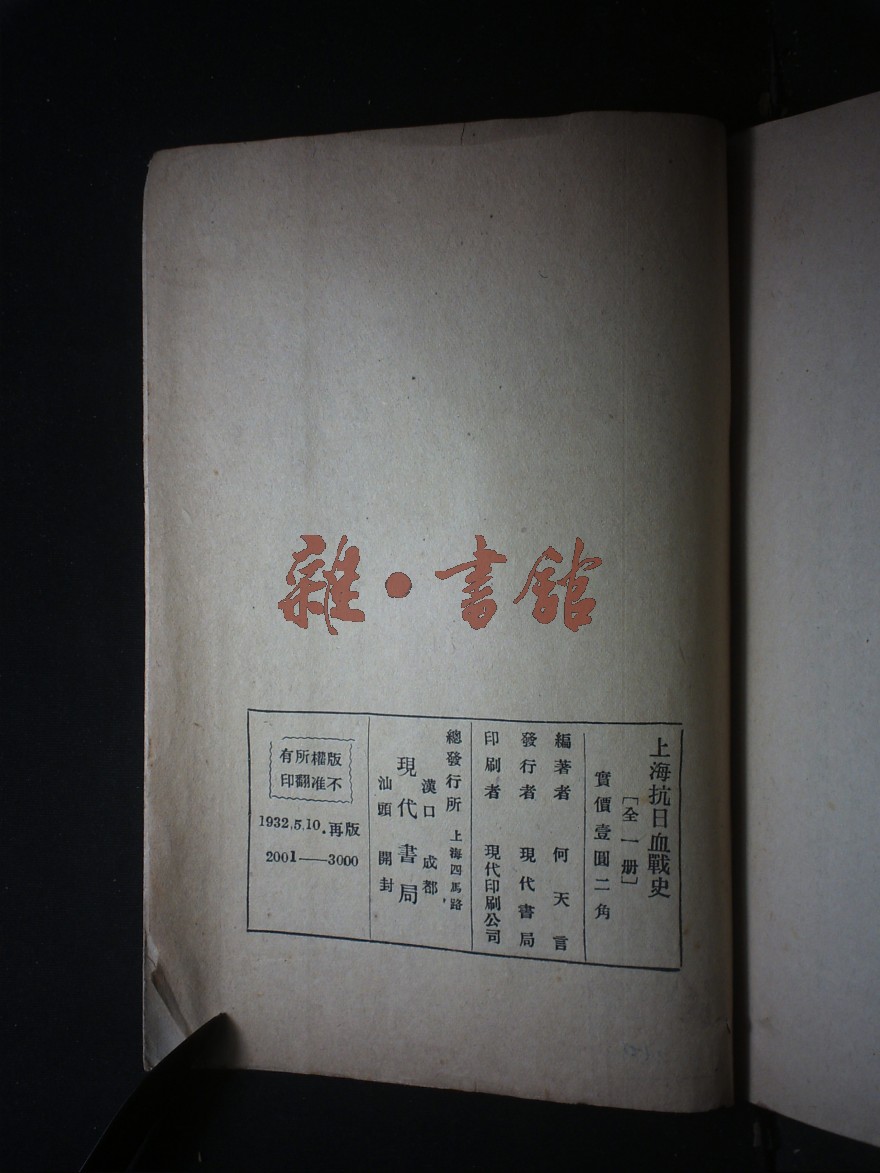 雜•書舘
上海抗日血戰史
[全一册]
實價壹圓二角
編著者 何天言
發行者 現代書局
印刷者 現代印刷公司
總發行所 上海四馬路
漢口 成都,
現代書局
汕頭 開封
版權所有
不准翻印
1932.5.10.再版
2001——3000